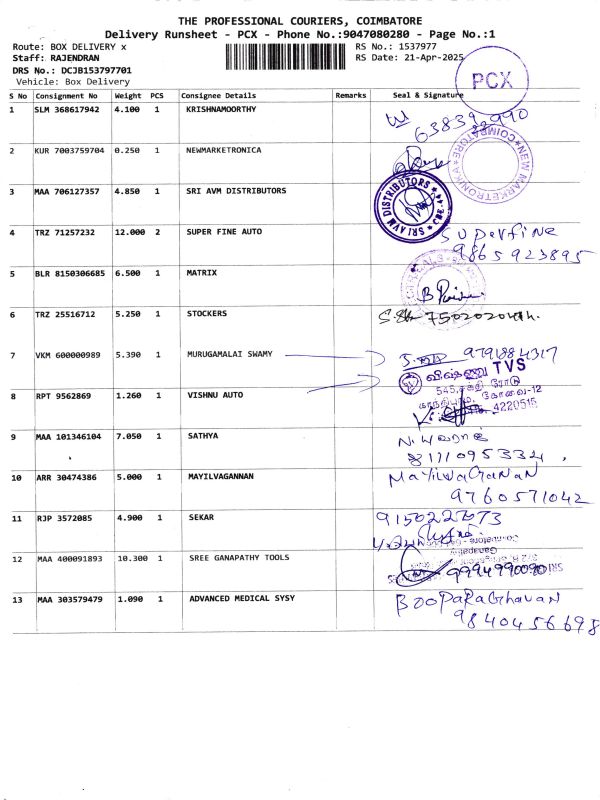 THE PROFESSIONAL COURIERS, COIMBATORE
Delivery Runsheet - PCX - Phone No.:9047080280 - Page No.:1
Route: BOX DELIVERY x
Staff: RAJENDRAN
DRS No.: DCJB153797701
Vehicle: Box Delivery
RS No.: 1537977
RS Date: 21-Apr-2025
PCX
S No Consignment No Weight PCS Consignee Details Remarks Seal & Signature
1 SLM 368617942 4.100 1 KRISHNAMOORTHY
2 KUR 7003759704 0.250 1 NEWMARKETRONICA
NEW MARKETRONIKA COIMBATORE
3 MAA 706127357 4.850 1 SRI AVM DISTRIBUTORS
SRI AVM DISTRIBUTORS CBE-44
4 TRZ 71257232 12.000 2 SUPER FINE AUTO Superfine
9865923895
5 BLR 8150306685 6.500 1 MATRIX
6 TRZ 25516712 5.250 1 STOCKERS
7 VKM 600000989 5.390 1 MURUGAMALAI SWAMY 9791884317
விஷ்ணு TVS
8 RPT 9562869 1.260 1 VISHNU AUTO
545, சக்தி ரோடு
கோவை-12
4220515
9 MAA 101346104 7.050 1 SATHYA
8111095334
10 ARR 30474386 5.000 1 MAYILVAGANNAN MAYilVAGANAN
9760571042
11 RJP 3572085 4.900 1 SEKAR
Coimbatore
Ganapathy
12 MAA 400091893 10.300 1 SREE GANAPATHY TOOLS 9994990090
13 MAA 303579479 1.090 1 ADVANCED MEDICAL SYSY BooPaRaGhavan
9840456698